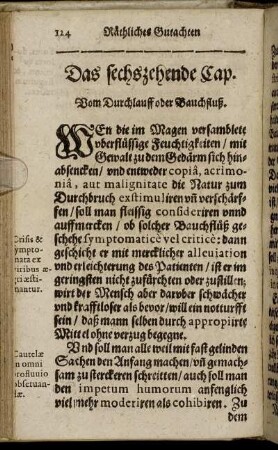 114 Räthliches Gutachten
Das sechszehende Cap.
Vom Durchlauff oder Bauchfluß.
WEn die im Magen versamblete
vberflüssige Feuchtigkeiten / mit
Gewalt zu dem Gedärm sich hin-
absencken / vnd entweder copiâ, acrimo-
niâ, aut malignitate die Natur zum
Durchbruch exstimuliren vñ verschärf-
fen / soll man fleissig consideriren vnnd
auffmercken / ob solcher Bauchfluß ge-
schehe symptomaticè vel criticè: dann
geschicht er mit mercklicher alleuiation
vnd erleichterung des Patienten / ist er im
geringsten nicht zufürchten oder zustillen;
wirt der Mensch aber darober schwächer
vnd krafftloser als bevor / will ein notturfft
sein / daß mann selben durch appropiirte
Mittel ohne verzug begegne.
Crisis &
symptoma-
nata ex
viribus æ-
gri æsti-
mantur.
Vnd soll man alle weil mit fast gelinden
Sachen den Anfang machen / vñ gemach-
sam zu sterckeren schreitten / auch soll man
den impetum humorum anfenglich
viel mehr moderiren als cohibiren. Zu
dem
Cautelæ
in omni
profluuio
obseruan-
dæ.